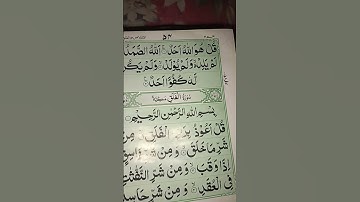 ۵۴
قُلْ هُوَ اللّٰهُ اَحَدٌ ۚ اَللّٰهُ الصَّمَدُ
لَمْ يَلِدْ وَلَمْ يُوْلَدْ وَلَمْ يَكُنْ
لَّهٗ كُفُوًا اَحَدٌ
سُوْرَةُ الْفَلَقِ
بِسْمِ اللّٰهِ الرَّحْمٰنِ الرَّحِيْمِ
قُلْ اَعُوْذُ بِرَبِّ الْفَلَقِ مِنْ
شَرِّ مَا خَلَقَ وَمِنْ شَرِّ
اِذَا وَقَبَ وَمِنْ شَرِّ النَّفّٰثٰتِ
فِي الْعُقَدِ وَمِنْ شَرِّ حَاسِدٍ